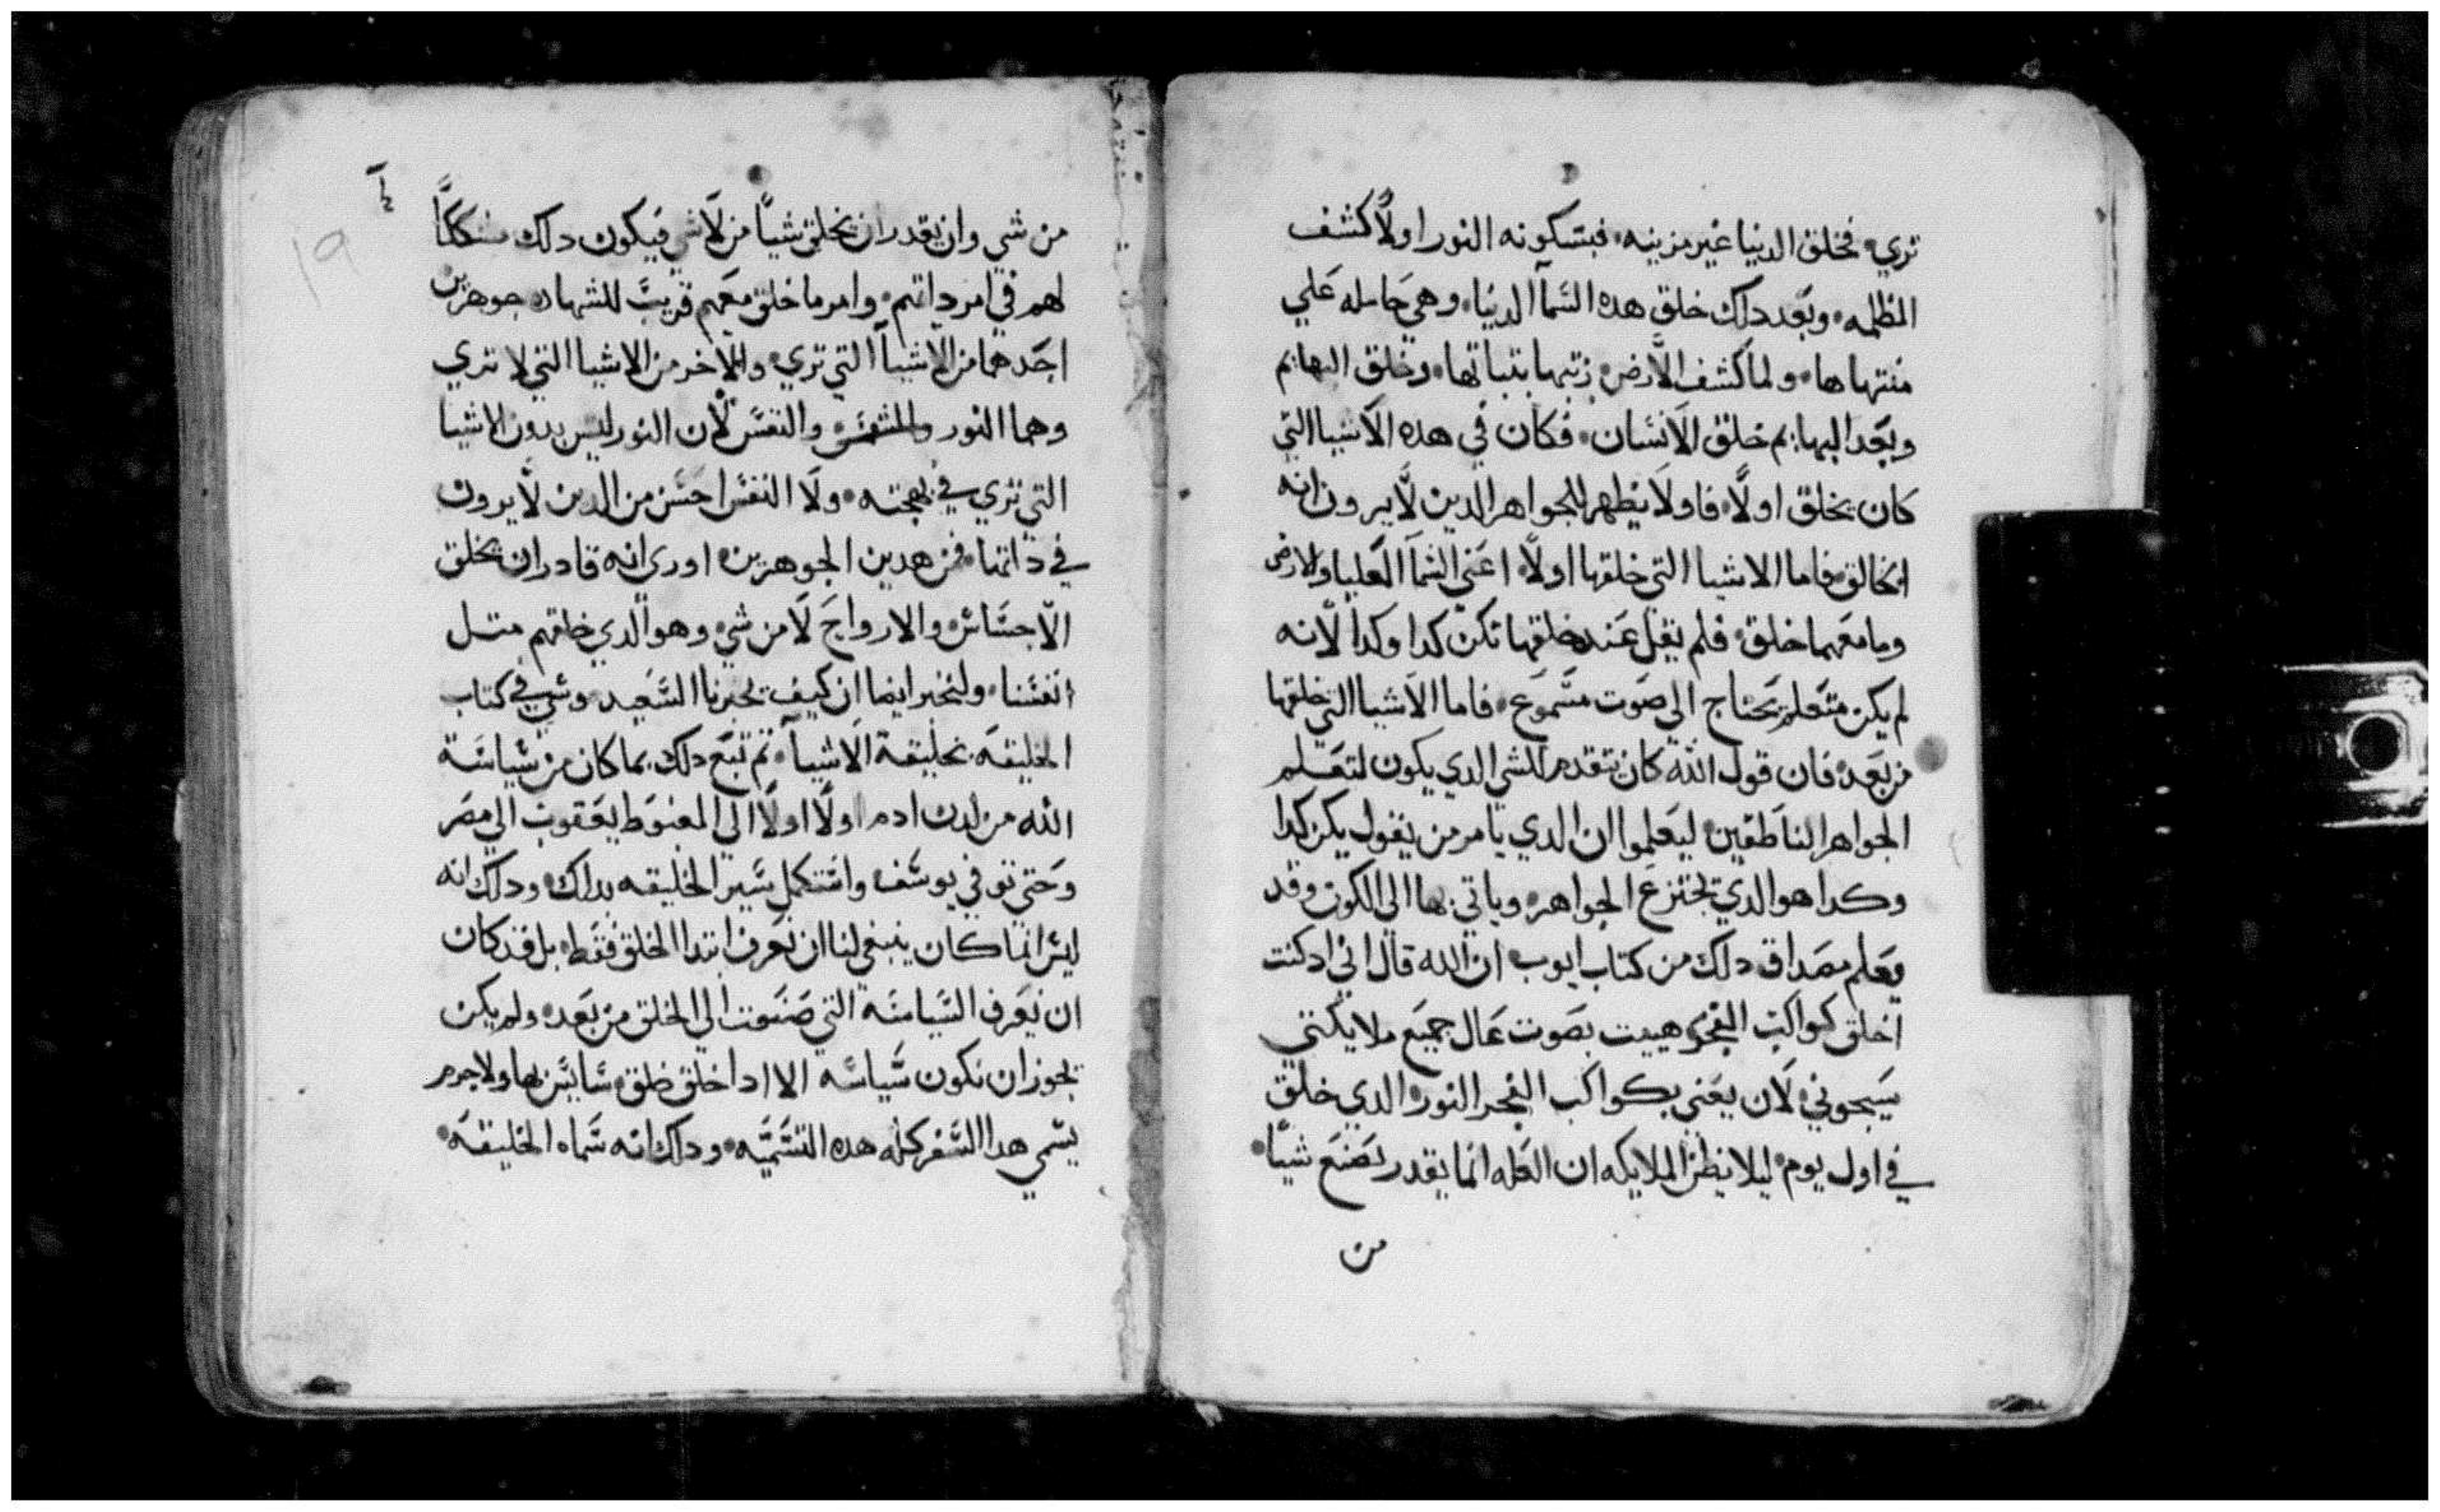 تري۰ فخلق الدنيا غير مزينه۰ فبتكونه النور اولًا كشف
الظلمه۰ وبعد دلك خلق هده السما الدنيا۰ وهي حامله علي
منتهاها۰ ولما كشف الارض۰ زينها بنباتها۰ وخلق البهايم
وبعد البهايم خلق الانسان۰ فكان في هده الاشيا التي
كان يخلق اولًا۰ فاولا يظهر للجواهر الدين لا يرون انه
الخالق۰ فاما الاشيا التي خلقها اولًا۰ اعني السما العليا والارض
وما معهما خلق۰ فلم يقل عند خلقها تكن كدا وكدا لانه
لم يكن متعلم يحتاج الي صوت مسموع۰ فاما الاشيا التي خلقها
من بعد۰ فان قول الله كان يتقدم للشي الدي يكون لتعلم
الجواهر الناطقين۰ ليعلموا ان الدي يامر من يقول يكن كدا
وكدا هو الدي يخترع الجواهر۰ وياتي بها الي الكون وقد
يعلم مصداق دلك من كتاب ايوب۰ ان الله قال اني اد كنت
اخلق كواكب الفجر۰ هييت بصوت عال جميع ملايكتي
يسبحوني۰ لان يعني بكواكب الفجر النور۰ الدي خلق
في اول يوم۰ ليلا يظن الملايكه ان العله انما يقدر يصنع شيًا۰
من
١٩
من شي وان يقدر ان يخلق شيًا من لا شي فيكون دلك مشكلًا
لهم في امر داتهم۰ وامر ما خلق معهم قريبً للشهاده جوهرين
احدهما من الاشيا التي تري۰ والاخر من الاشيا التي لا تري
وهما النور والنفس لان النور ليس بدون الاشيا
التي تري في بهجته۰ ولا النفس احسن من الدين لا يرون
في داتها۰ فمن هدين الجوهرين۰ اوري انه قادر ان يخلق
الاجساد۰ والارواح لا من شي۰ وهو الدي خلقهم متل
انفسنا۰ ولنخبر ايضا ان كيف يخبرنا السعيد موسي في كتاب
الخليقه۰ بخليقة الاشيا۰ تم تبع دلك بما كان من سياسة
الله من لدن ادم اولًا اولًا الي المغبوط يعقوب الي مصر
وحتي توفي يوسف۰ واستكمل سير الخليقه بداك۰ ودلك انه
ليس انما كان ينبغي لنا ان نعرف ابتدا الخلق فقط۰ بل قد كان
ان نعرف السياسه التي صنعت الي الخلق من بعد۰ ولم يكن
يجوز ان تكون سياسه الا ادا خلق خلق۰ سايس لها ولا جرم
يسمي هدا السفر كله هده التسميه۰ ودلك انه سماه الخليقه۰